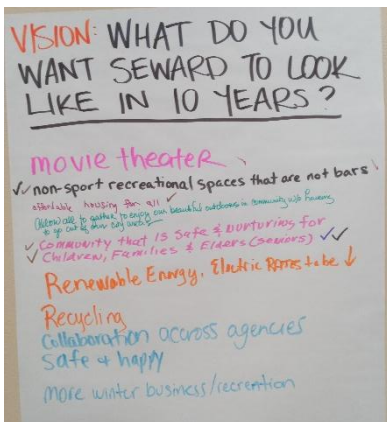 VISION: WHAT DO YOU
WANT SEWARD TO LOOK
LIKE IN 10 YEARS?
movie theater
✓✓ non-sport recreational spaces that are not bars
affordable housing for all ✓
Allow all to gather to enjoy our beautiful outdoors in community w/o having
to go out of
✓ Community that is Safe & Nurturing for
✓ Children, Families & Elders (seniors) ✓✓
Renewable Energy. Electric Rates to be ↓
Recycling
Collaboration accross agencies
Safe & happy
more winter business/recreation